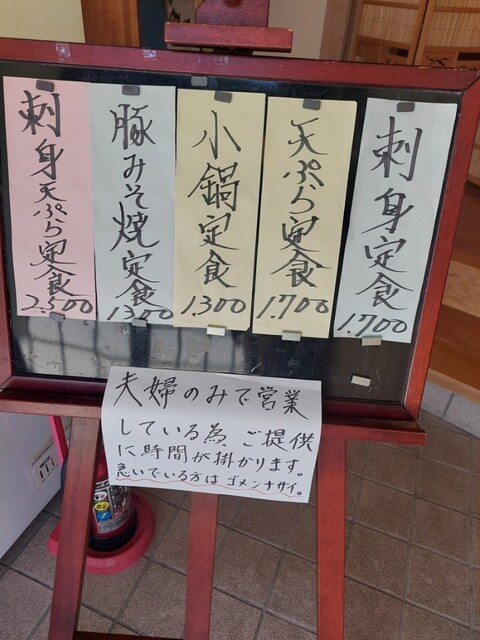 刺身定食
1.700
天ぷら定食
1.700
小鍋定食
1.300
豚みそ焼定食
1300
刺身天ぷら定食
2.500
夫婦のみで営業
している為 ご提供
に時間が掛かります。
急いでいる方は ゴメンナサイ。